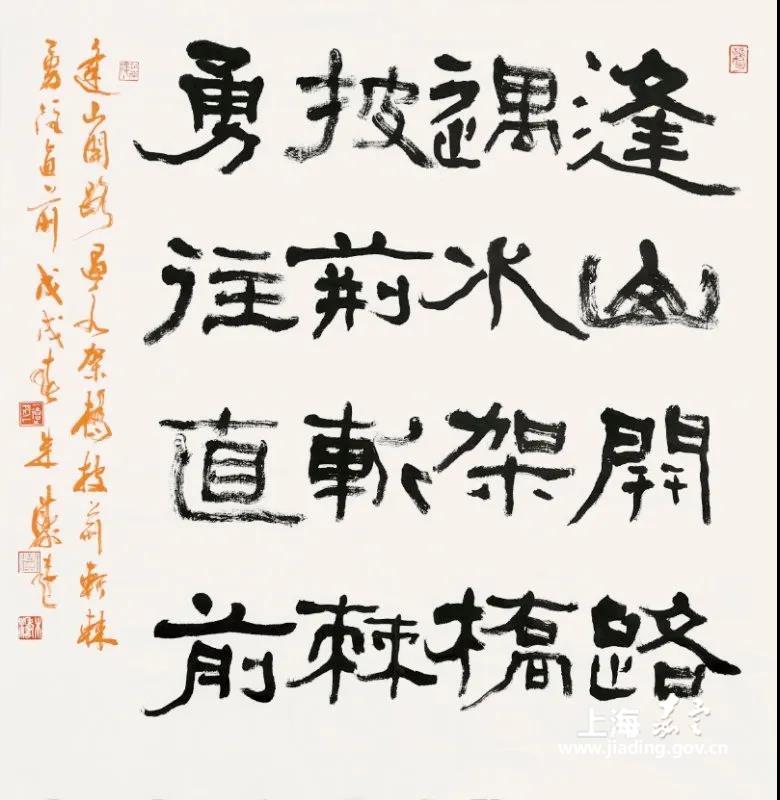 逢山開路
遇水架橋
披荆斬棘
勇往直前
逢山開路遇水架橋披荆斬棘
勇往直前 戊戌春 朱
上海嘉定
www.jiading.gov.cn